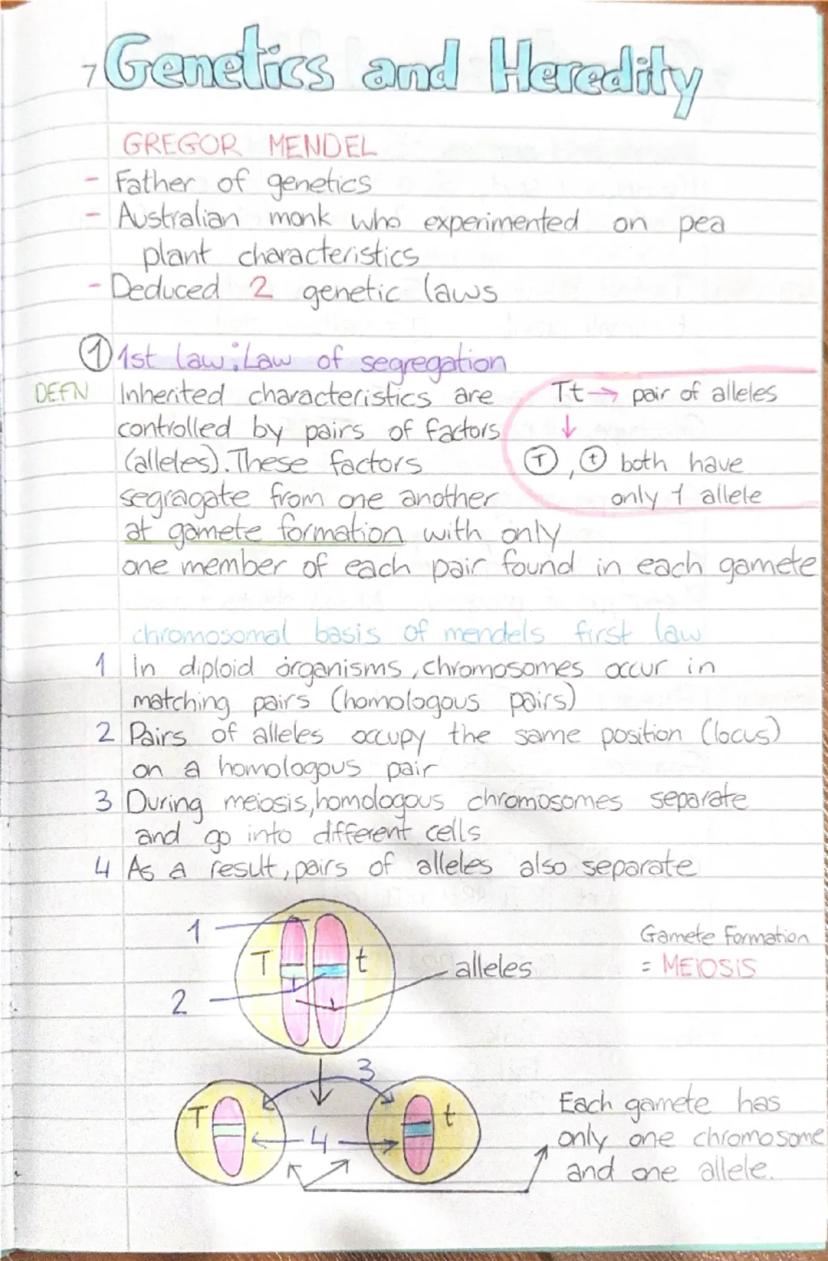 7 Genetics and Heredity
GREGOR MENDEL
- Father of genetics
- Australian monk who experimented on pea
plant characteristics
- Deduced 2 genetic laws
① 1st law: Law of segregation
DEFN Inherited characteristics are
controlled by pairs of factors
(alleles). These factors
segragate from one another
at gamete formation with only
one member of each pair found in each gamete
Tt → pair of alleles
↓
Ⓣ, ⓣ both have
only 1 allele
chromosomal basis of mendels first law
1 In diploid organisms, chromosomes occur in
matching pairs (homologous pairs)
2 Pairs of alleles occupy the same position (locus)
on a homologous pair
3 During meiosis, homologous chromosomes separate
and go into different cells
4 As a result, pairs of alleles also separate
1
T t
alleles
2
Gamete formation
= MEIOSIS
3
T t
4
Each gamete has
only one chromosome
and one allele.